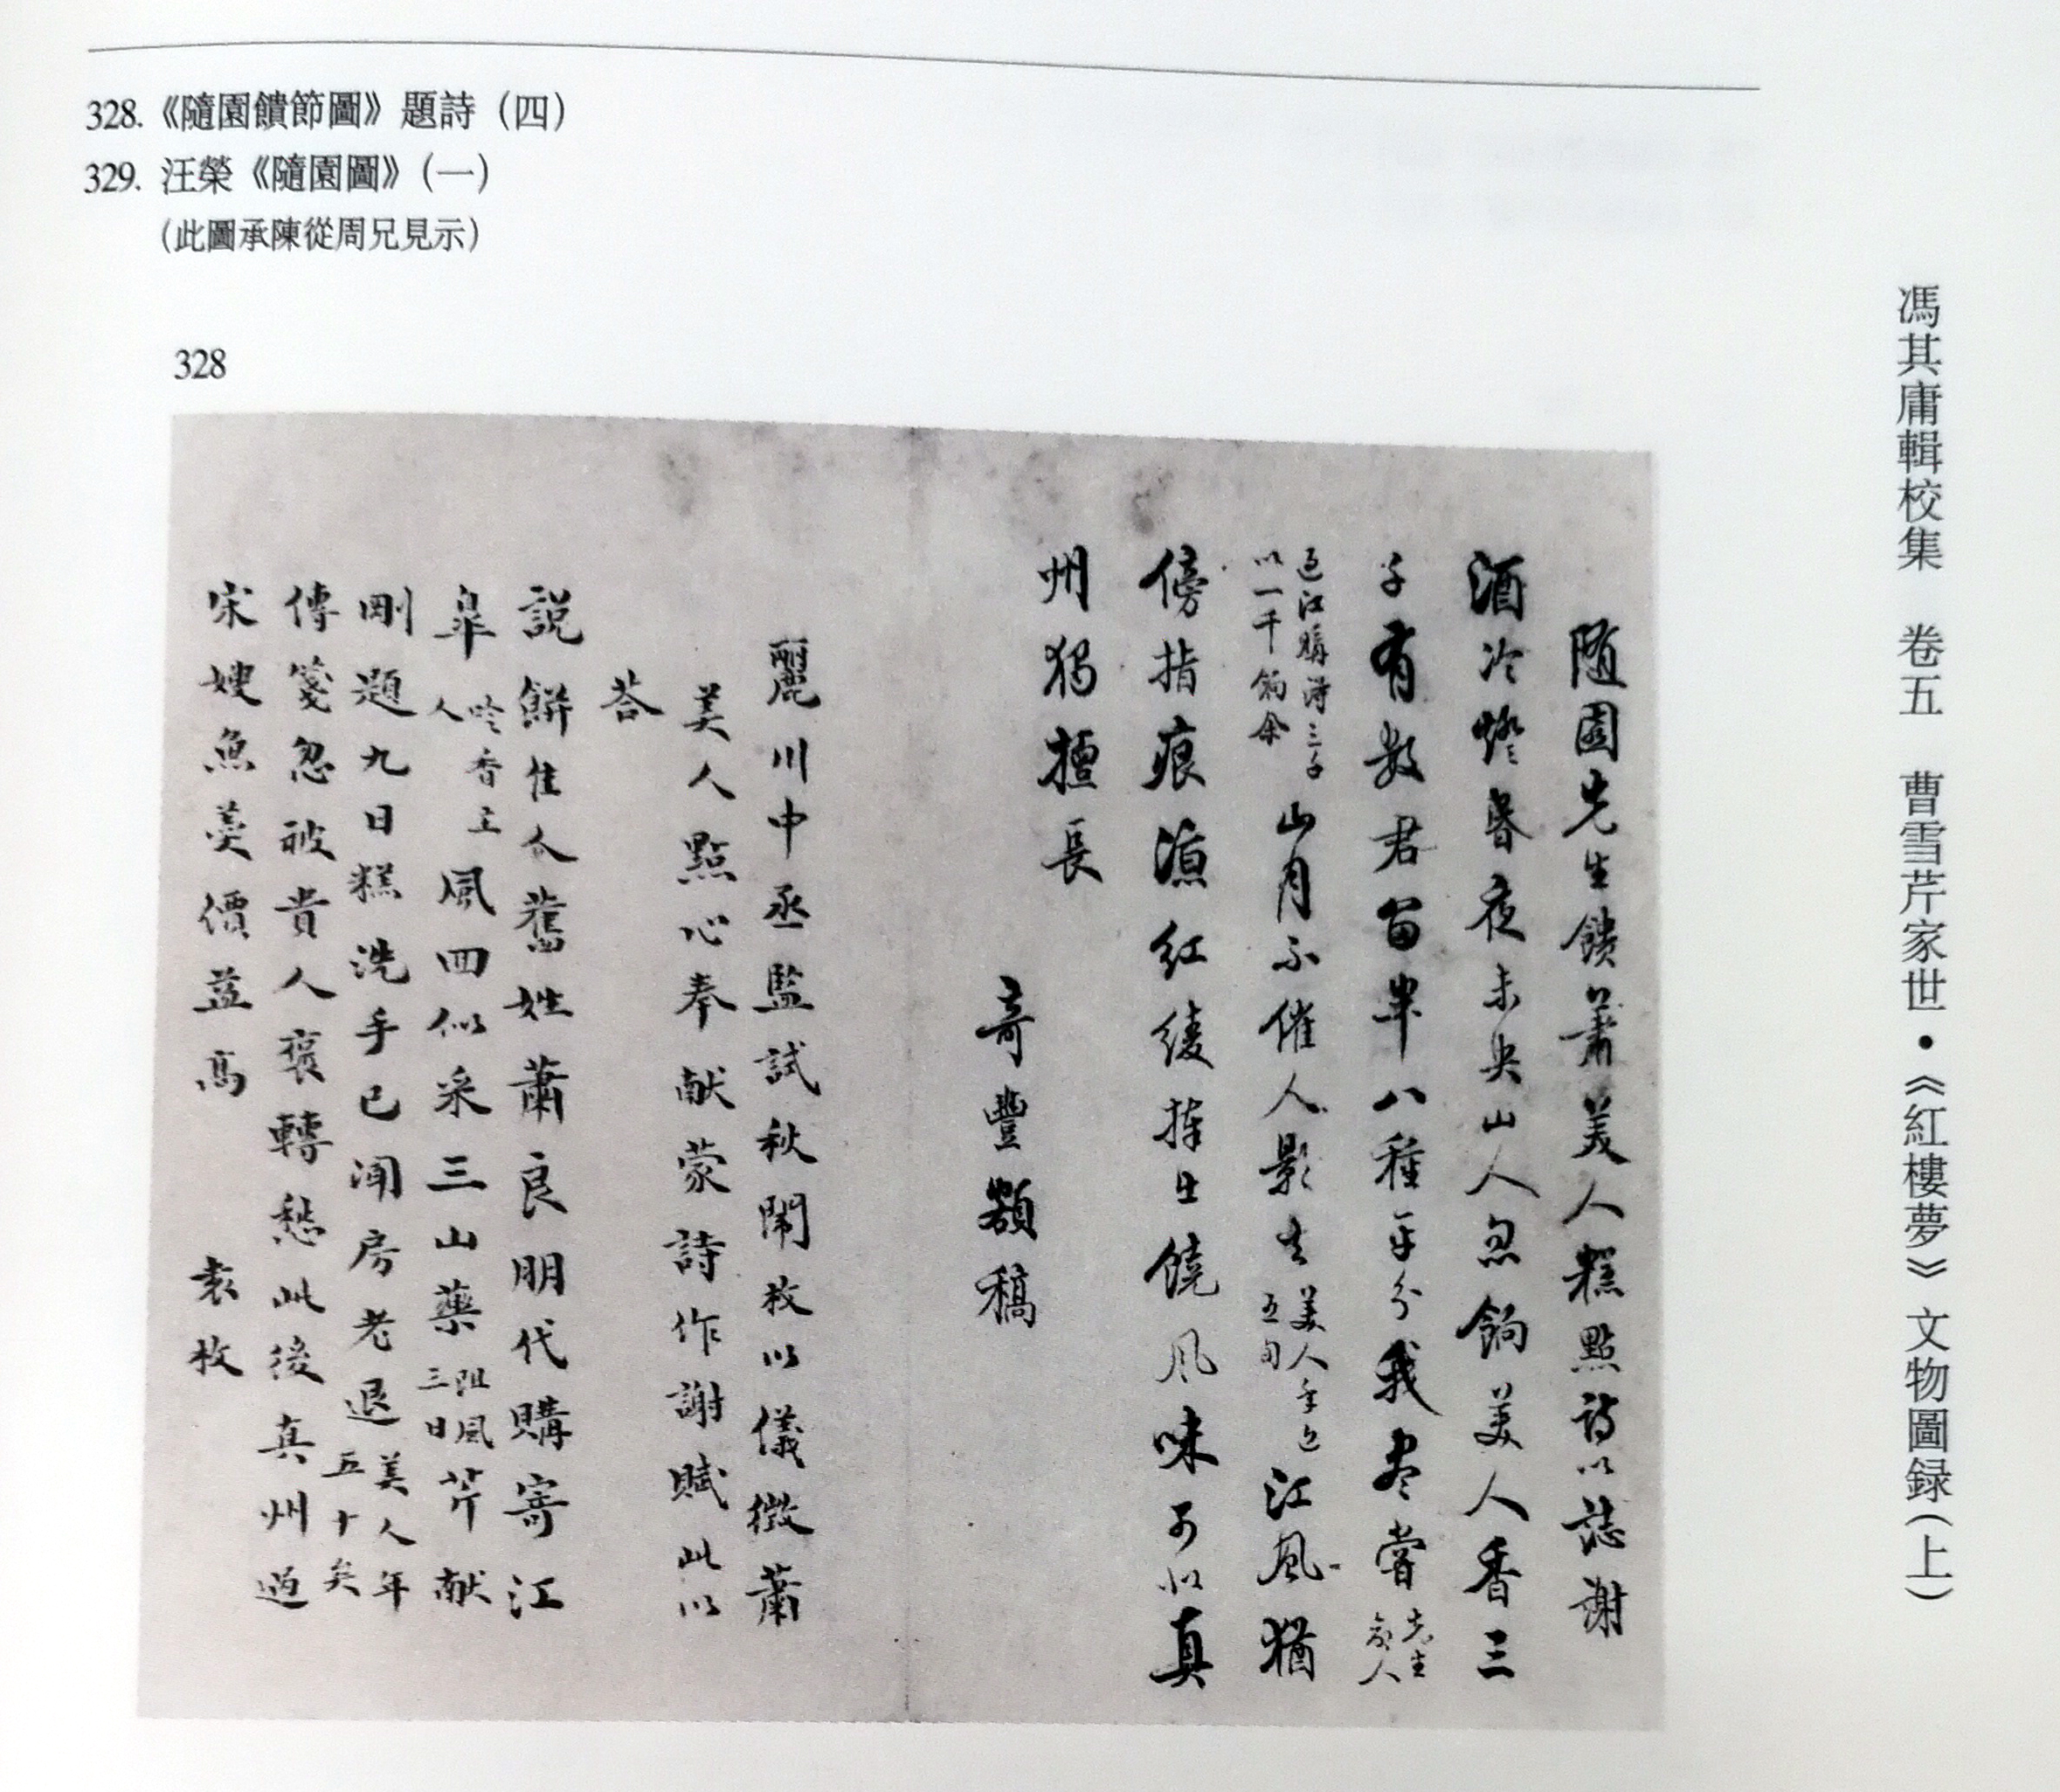 328.《隨園饋節圖》題詩（四）
329. 汪榮《隨園圖》（一）
（此圖承陳從周兄見示）
328
馮其庸輯校集　卷五　曹雪芹家世・《紅樓夢》文物圖録（上）
随園先生饋蕭美人糕點詩以誌謝
酒冷燈昏夜未央山人忽餉美人香三
千有數君留半八種平分我盡嘗先生
命人
過江購得三千
以一千餉余山月不催人影去美人年已
五旬江風猶
傍指痕涼紅綾捧出饒風味可似真
州獨擅長
奇豐額稿
麗川中丞監試秋闈枚以儀徵蕭
美人點心奉献蒙詩作謝賦此以
荅
説餅佳人舊姓蕭良朋代購寄江
皐吟香主
人風回似采三山藥阻風
三日芹献
剛題九日糕洗手已闻房老退美人年
五十矣
傳箋忽被貴人褒轉愁此後真州過
宋嫂魚羹價益高
袁枚